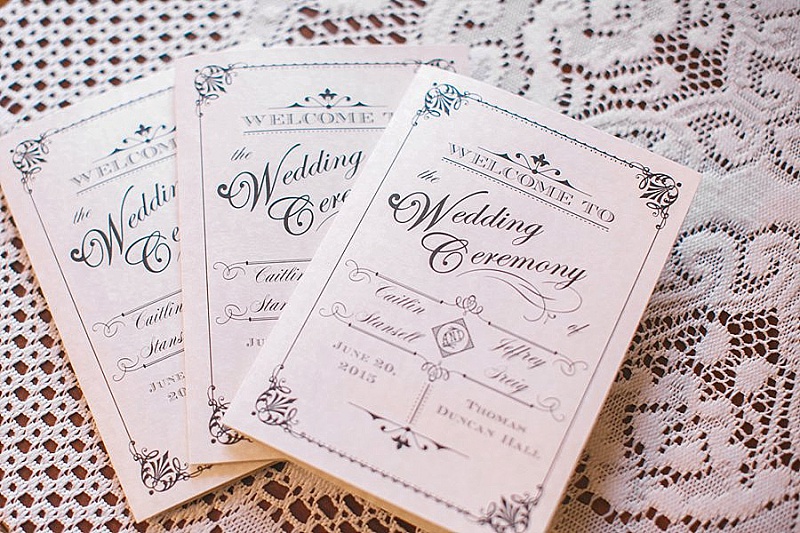 WELCOME TO
the
Wedding
Ceremony
of
Caitlin
Stansell
AND
Jeffrey
Greig
JUNE 20,
2015
THOMAS
DUNCAN HALL
WELCOME T
the
Wedding
Cere
Caitlin
Stan
JU
WELCOM
the
Weddin
Ce
Caitlin
Stans
JUNE
20